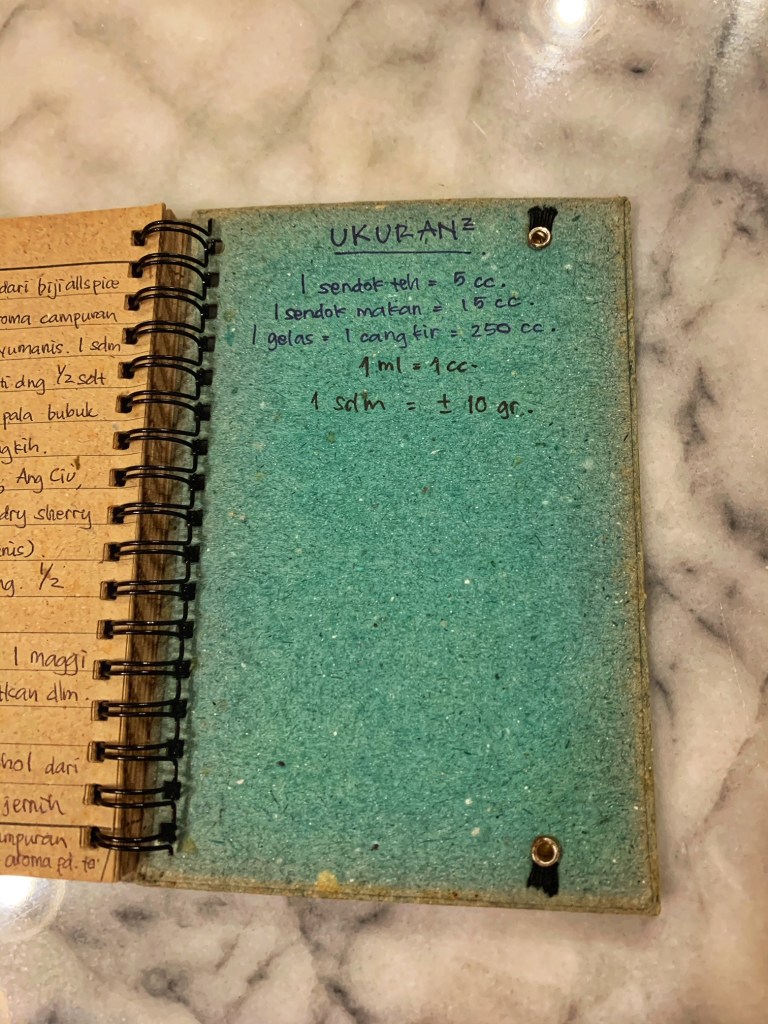 dari biji allspice
oma campuran
yumanis. 1 sdm
ti dng 1/2 sdt
pala bubuk
gkih.
Ang Ciu,
dry sherry
nis).
g. 1/2
1 maggi
tkan dlm.
hol dari
jernih
mpuran
aroma pd.
UKURAN²
1 sendok teh = 5 cc.
1 sendok makan = 15 cc.
1 gelas = 1 cangkir = 250 cc.
1 ml = 1 cc.
1 sdm = ± 10 gr.